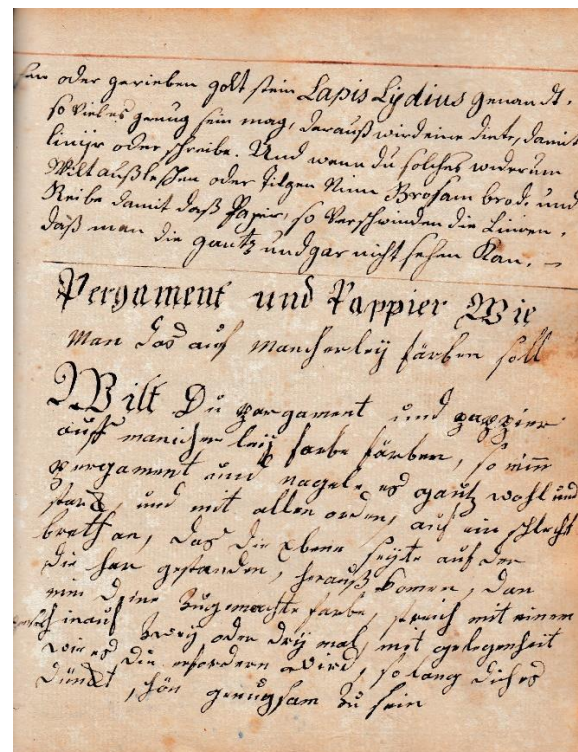 oder gerieben golt stein Lapis Lydius genandt,
so viel es genug sein mag, darauß wird eine diete, damit
linijr oder schreibe. Und wenn du solches widerum
Wilt außleschen oder tilgen Nim Brosam brod, und
Reibe damit daß Papir, so Verschwinden die Linien,
daß man die gantz und gar nicht sehen Kan. –
Pergament und Pappier Wie
Man das auf mancherleÿ färben soll
Wilt Du pergament und pappier
auff manicher leij farbe färben, so nim
pergament und nagele es gantz wohl und
starck und mit allen orden, auf ein schlecht
breth an, das die Ebene seÿte auf der
die har gestanden, herauß komen, dan
nim deine zugemachte farbe, streich mit einem
hinauf zweÿ oder dreÿ mal, mit gelegenheit
wie es die erfordern wird, so lang dich es
dünckt, schön genugsam zu sein